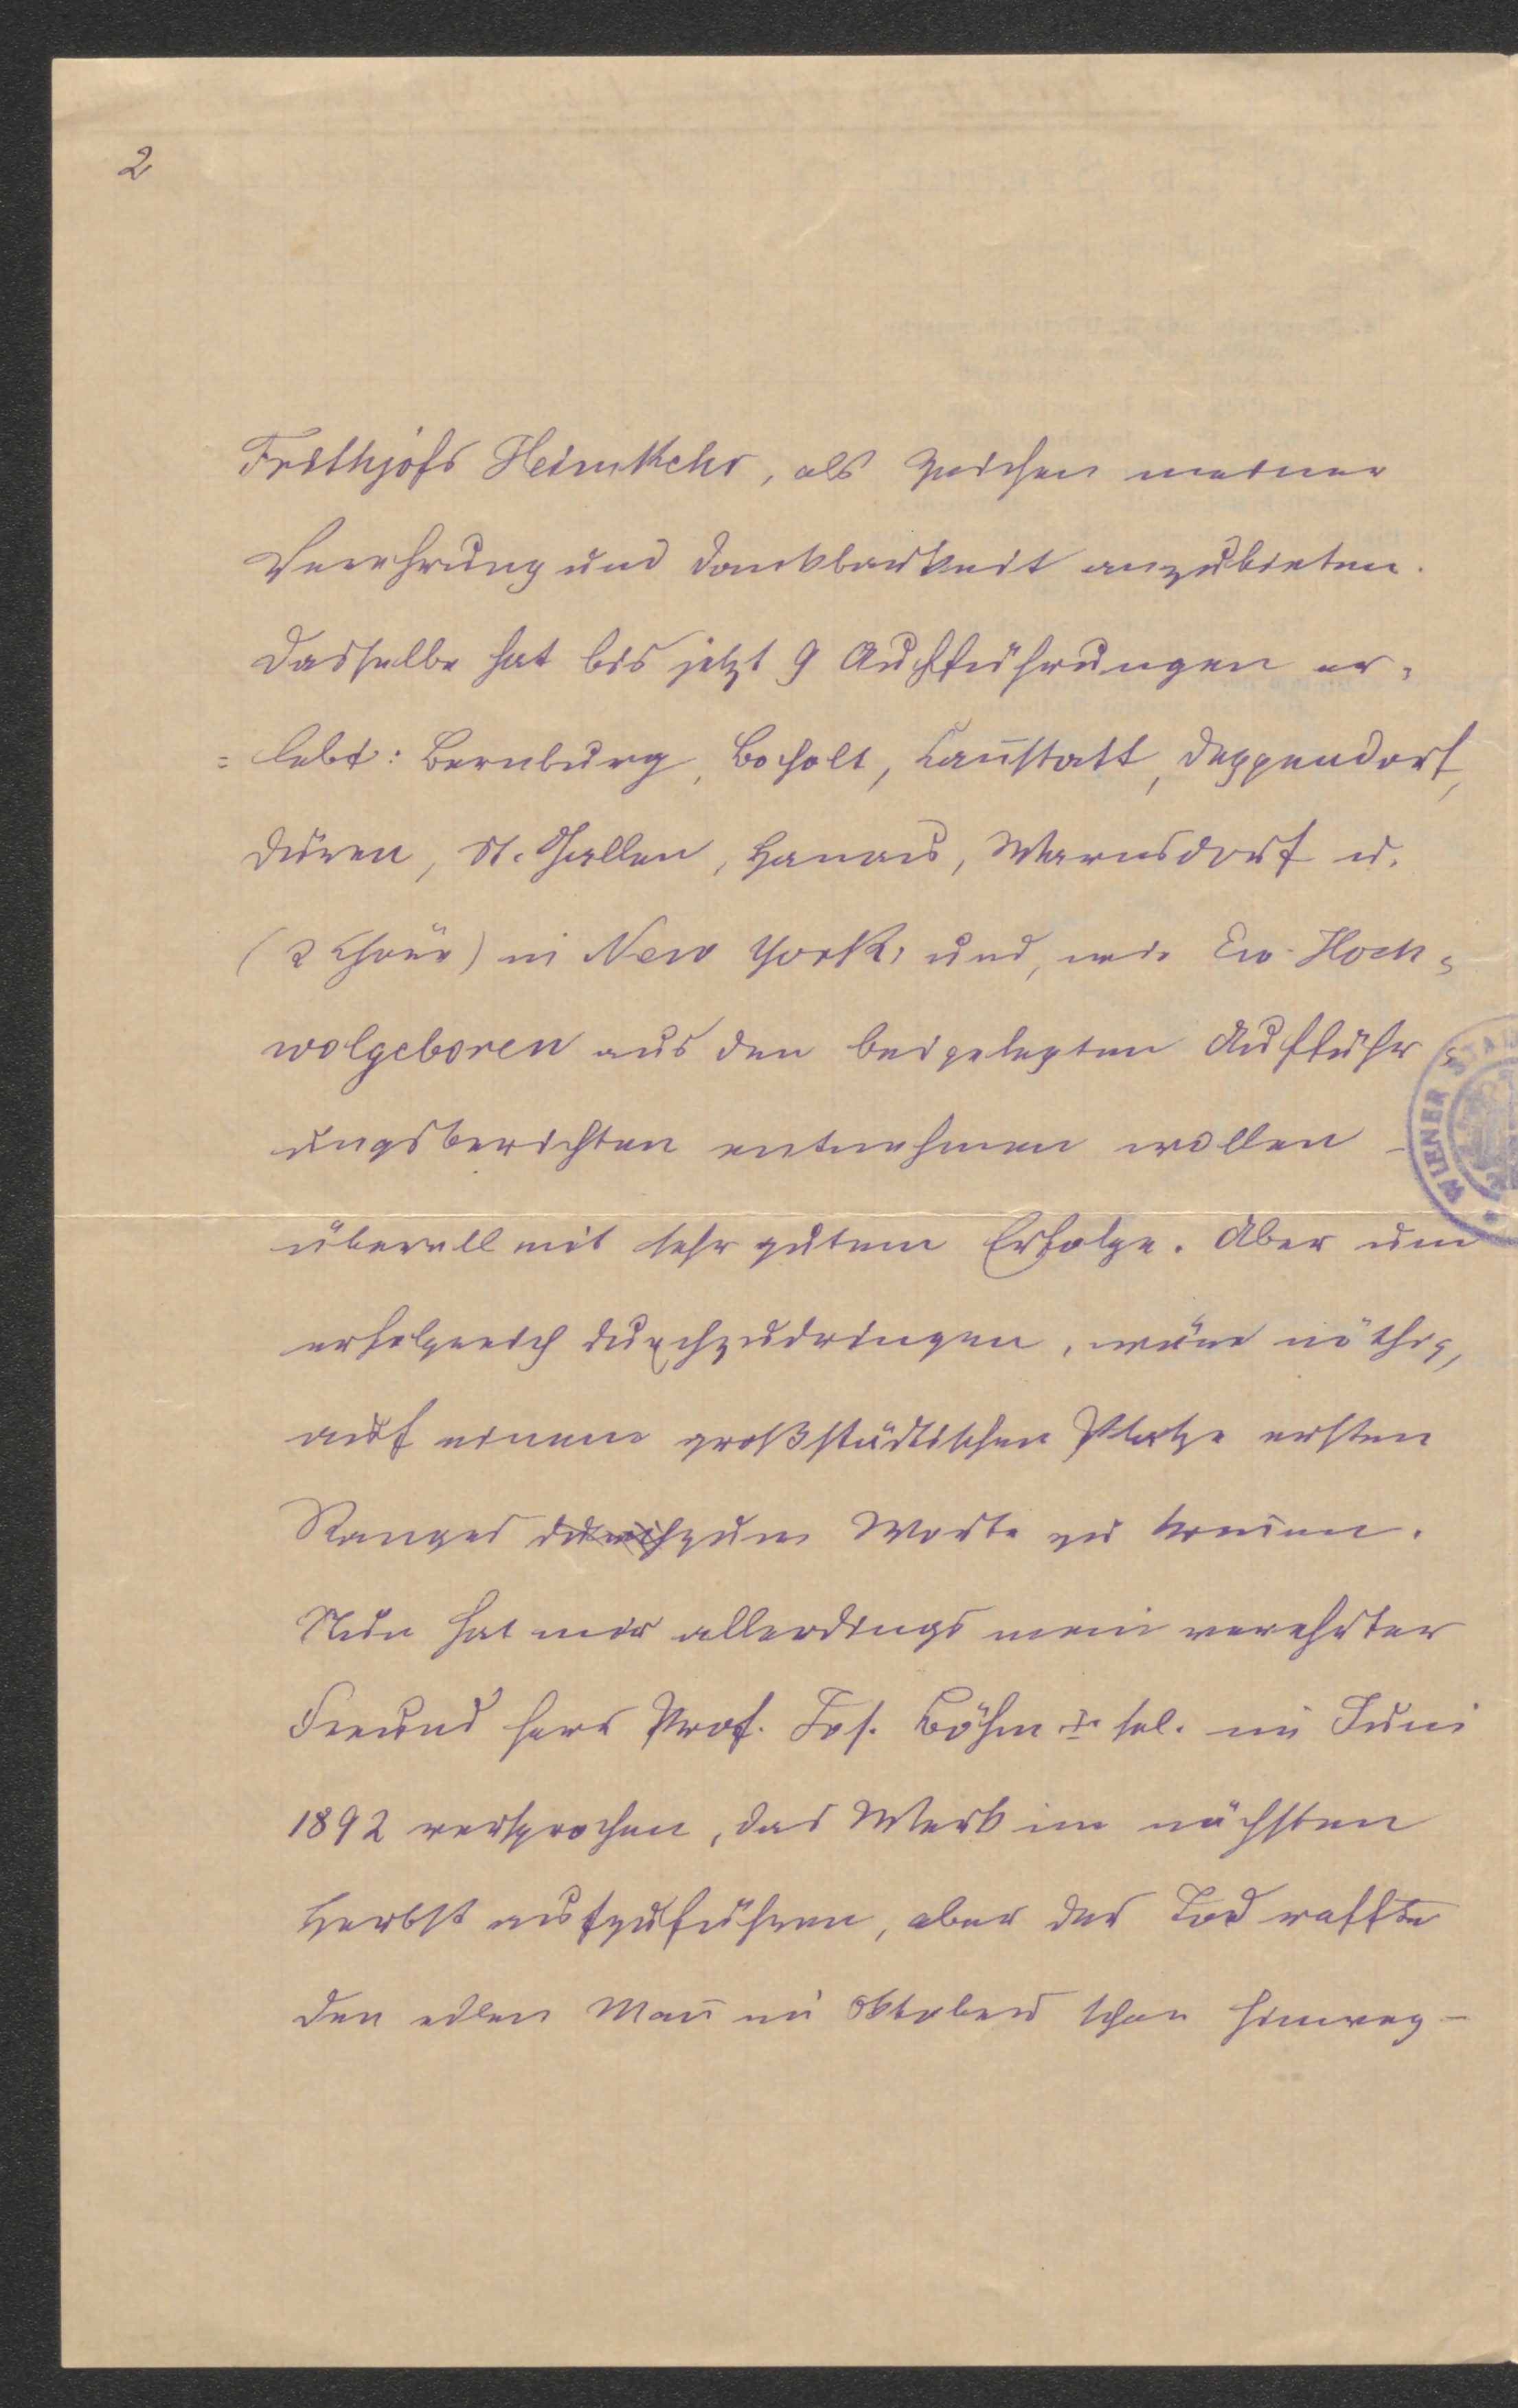 2
Frithjofs Heimkehr, als Zeichen meiner
Verehrung und Dankbarkeit anzubieten.
Dasselbe hat bis jetzt 9 Aufführungen er-
=lebt: Bernburg, Bocholt, Canstatt, Deggendorf,
Düren, St. Gallen, Hanau, Warnsdorf u.
(2 Chöre) in New York, und, wie Ew. Hoch-
wolgeboren aus den beigelegten Aufführ-
ungsberichten entnehmen wollen –
überall mit sehr gutem Erfolge. Aber um
erfolgreich durchzudringen, wäre nöthig,
auf einem großstädtischen Platze ersten
Ranges durch zum Worte zu kom̅en.
Nun hat mir allerdings mein verehrter
Freund Herr Prof. Jos. Böhm sel. im Juni
1892 versprochen, das Werk im nächsten
Herbst aufzuführen, aber der Tod raffte
den edlen Man̅ im Oktober schon hinweg –
WIENER STA